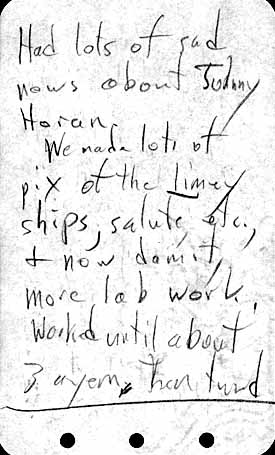 Had lots of sad
news about Johnny
Horan.
We made lots of
pix of the Limey
ships, salute, etc.,
& now damit,
more lab work.
Worked until about
3 ayem, then turnd